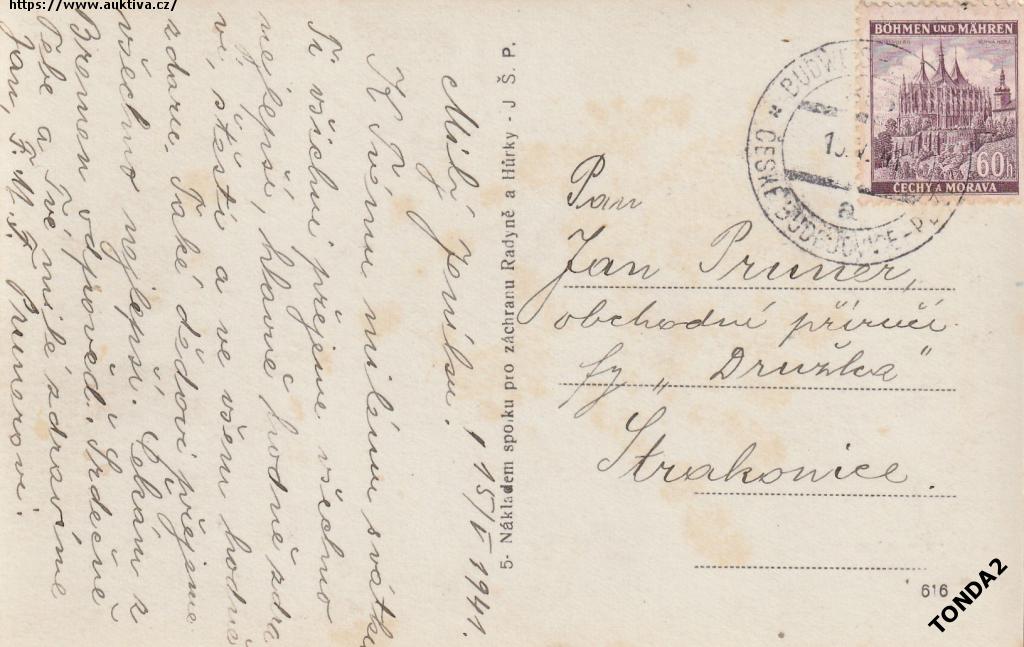 https://www.auktiva.cz/
Milý Jeníku! 15/V 1941.
K Tvému milému svátku
Ti všichni přejeme všechno
nejlepší, hlavně hodně zdra
ví, štěstí a ve všem hodně
zdaru. Také dědovi přejeme
všechno nejlepší. Čekám z
Bremen odpověď. Srdečně
Tebe a Tvé milé zdravíme
Jan, F. M. F. Prunerovi.
5- Nákladem spolku pro záchranu Radyně a Hůrky - J Š. P.
BÖHMEN UND MÄHREN
60h
ČECHY A MORAVA
ČESKÉ BUDĚJOVICE
a
Pan
Jan Pruner,
obchodní příručí
fy „Družka“
Strakonice.
616
TONDA2